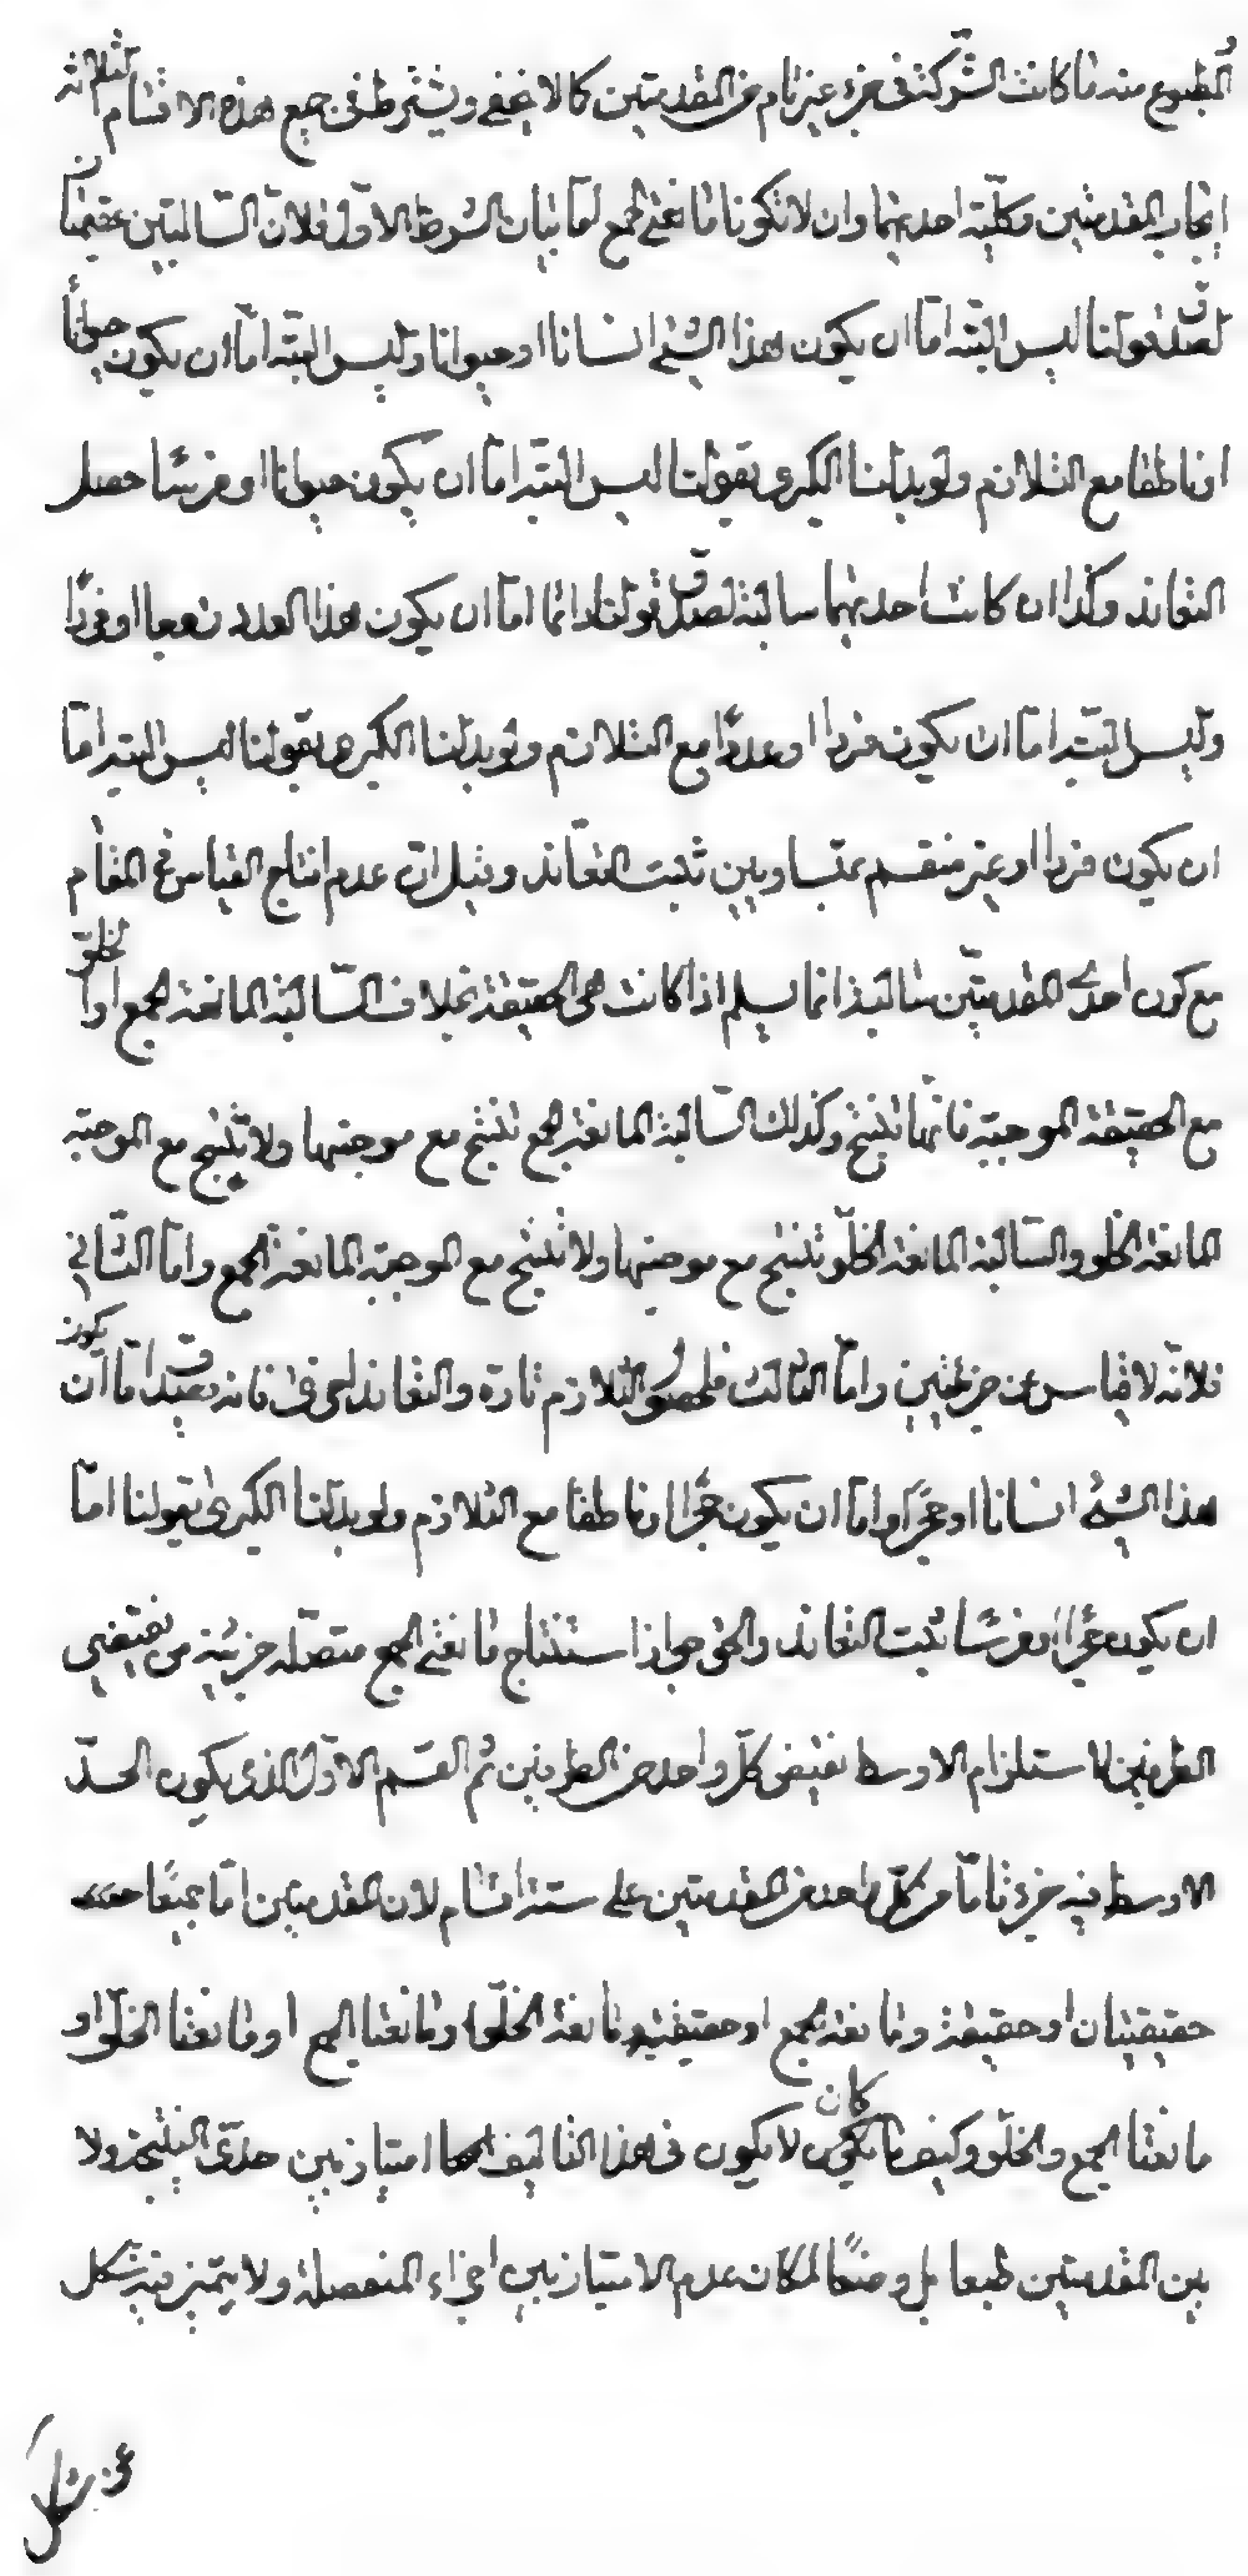 المطبوع منه ما كانت الشركة فى جزء غير تام من المقدمتين كما لا يخفى ويشترط فى جميع هذه الاقسام الثلاثة
ايجاب المقدمتين وكلية احديهما وان لا تكونا مانعتى الجمع اما بيان الشرط الاول فلان السالبتين عقيمتان
لصدق قولنا ليس البتة اما ان يكون هذا الشئ انسانا او حيوانا وليس البتة اما ان يكون حيوانا
او ناطقا مع التلازم ولو بدلنا الكبرى بقولنا ليس البتة اما ان يكون حيوانا او فرسا حصل
التعاند وكذا ان كانت احديهما سالبة لصدق قولنا دائما اما ان يكون هذا العدد زوجا او فردا
وليس البتة اما ان يكون فردا او عددا مع التلازم ولو بدلنا الكبرى بقولنا ليس البتة اما
ان يكون فردا او غير منقسم بمتساويين ثبت التعاند وقيل ان عدم انتاج القياس فى المقام
مع كون احدى المقدمتين سالبة انما يسلم اذا كانت هى الحقيقة بخلاف السالبة المانعة الجمع او الخلو
مع الحقيقة الموجبة فانها تنتج وكذلك السالبة المانعة الجمع تنتج مع موجبتها ولا تنتج مع الموجبة
المانعة الخلو والسالبة المانعة الخلو تنتج مع موجبتها ولا تنتج مع الموجبة المانعة الجمع واما الثانى
فلانه لا قياس عن جزئيتين واما الثالث فلحصول التلازم تارة والتعاند اخرى فانه يصدق اما ان يكون
هذا الشئ انسانا او حجرا واما ان يكون حجرا او ناطقا مع التلازم ولو بدلنا الكبرى بقولنا اما
ان يكون حجرا او فرسا ثبت التعاند والحق جواز استنتاج مانعتى الجمع متصلة جزئية من نقيضى
الطرفين لاستلزام الاوسط نقيض كل واحد من الطرفين ثم القسم الاول الذى يكون الحد
الاوسط فيه جزء تاما من كل واحد من المقدمتين على ستة اقسام لان المقدمتين اما جميعا
حقيقيتان او حقيقة ومانعة الجمع او حقيقة ومانعة الخلو او مانعتا الجمع او مانعتا الخلو او
مانعتا الجمع والخلو وكيف ما كان لا يكون فى هذا التاليف امتياز بين حدى النتيجة ولا
بين المقدمتين طبعا بل وضعا لمكان عدم الامتياز بين اجزاء المنفصلة ولا يتميز فيه شكل
عن شكل